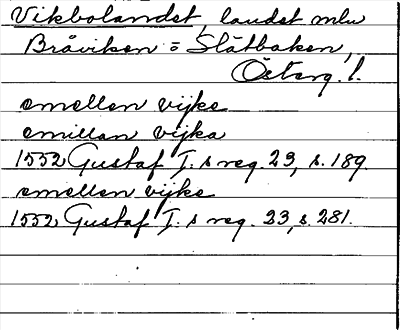 Vikbolandet, landet mlw
Bråviken o Slätbaken,
Österg. l.
emellan vijke
emillan vijka
1552 Gustaf I:s reg. 23, s. 189.
emellen vijke
1552 Gustaf I:s reg. 23, s. 281.